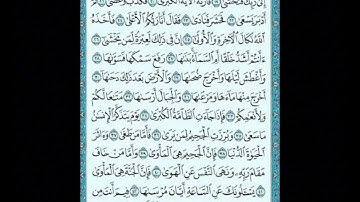 إِلَىٰ رَبِّكَ فَتَخْشَىٰ ١٩ فَأَرَىٰهُ ٱلْءَايَةَ ٱلْكُبْرَىٰ ٢٠ فَكَذَّبَ وَعَصَىٰ ٢١ ثُمَّ
أَدْبَرَ يَسْعَىٰ ٢٢ فَحَشَرَ فَنَادَىٰ ٢٣ فَقَالَ أَنَا۠ رَبُّكُمُ ٱلْأَعْلَىٰ ٢٤ فَأَخَذَهُ
ٱللَّهُ نَكَالَ ٱلْءَاخِرَةِ وَٱلْأُولَىٰٓ ٢٥ إِنَّ فِى ذَٰلِكَ لَعِبْرَةً لِّمَن يَخْشَىٰٓ ٢٦
ءَأَنتُمْ أَشَدُّ خَلْقًا أَمِ ٱلسَّمَآءُ بَنَىٰهَا ٢٧ رَفَعَ سَمْكَهَا فَسَوَّىٰهَا ٢٨
وَأَغْطَشَ لَيْلَهَا وَأَخْرَجَ ضُحَىٰهَا ٢٩ وَٱلْأَرْضَ بَعْدَ ذَٰلِكَ دَحَىٰهَآ ٣٠
أَخْرَجَ مِنْهَا مَآءَهَا وَمَرْعَىٰهَا ٣١ وَٱلْجِبَالَ أَرْسَىٰهَا ٣٢ مَتَٰعًا لَّكُمْ
وَلِأَنْعَٰمِكُمْ ٣٣ فَإِذَا جَآءَتِ ٱلطَّآمَّةُ ٱلْكُبْرَىٰ ٣٤ يَوْمَ يَتَذَكَّرُ ٱلْإِنسَٰنُ
مَا سَعَىٰ ٣٥ وَبُرِّزَتِ ٱلْجَحِيمُ لِمَن يَرَىٰ ٣٦ فَأَمَّا مَن طَغَىٰ ٣٧ وَءَاثَرَ
ٱلْحَيَوٰةَ ٱلدُّنْيَا ٣٨ فَإِنَّ ٱلْجَحِيمَ هِىَ ٱلْمَأْوَىٰ ٣٩ وَأَمَّا مَنْ خَافَ
مَقَامَ رَبِّهِۦ وَنَهَى ٱلنَّفْسَ عَنِ ٱلْهَوَىٰ ٤٠ فَإِنَّ ٱلْجَنَّةَ هِىَ ٱلْمَأْوَىٰ
٤١ يَسْـَٔلُونَكَ عَنِ ٱلسَّاعَةِ أَيَّانَ مُرْسَىٰهَا ٤٢ فِيمَ أَنتَ مِن